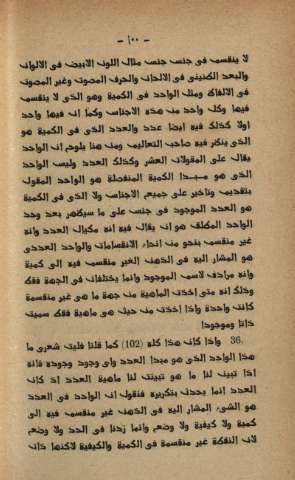 — ١٠٠ —
لا ينقسم فى جنس جنس مثال اللون الابيض فى الالوان
والبعد الطنينى فى الالحان والحرف المصوت وغير المصوت
فى الالفاظ ومثل الواحد فى الكمية وهو الذى لا ينقسم
فيها وكل واحد من هذه الاجناس وكما ان فيها واحد
اولا كذلك فيه ايضا عدد والعدد الذى فى الكمية هو
الذى ينظر فيه صاحب التعاليم ومن هنا يلوح ان الواحد
يقال على المقولات العشر وكذلك العدد وليس الواحد
الذى هو مبدا الكمية المنفصلة هو الواحد المقول
بتقديم وتاخير على جميع الاجناس ولا الذى فى الكمية
هو العدد الموجود فى جنس على ما سيظهر بعد وحد
الواحد المطلق هو ان يقال فيه انه مكيال العدد وانه
غير منقسم بنحو من انحاء الانقسامات والواحد العددى
هو المشار اليه فى الذهن الغير منقسم فيه الى كمية
وانه مرادف لاسم الموجود وانما يختلفان فى الجهة فقط
وذلك انه متى اخذت الماهية من جهة ما هى غير منقسمة
كانت واحدة واذا اخذت من حيث هى ماهية فقط سميت
ذاتا وموجودا
36. واذا كان هذا كله (102) كما قلنا فليت شعرى ما
هذا الواحد الذى هو مبدا العدد واى وجود وجوده فانه
اذا تبين لنا ما هو تبينت لنا ماهية العدد اذ كان
العدد انما يحدث بتكريره فنقول ان الواحد فى العدد
هو الشىء المشار اليه فى الذهن غير منقسم فيه الى
كمية ولا كيفية ولا وضع وانما زدنا فى الحد ولا وضع
لان النقطة غير منقسمة فى الكمية والكيفية لاكنها ذات